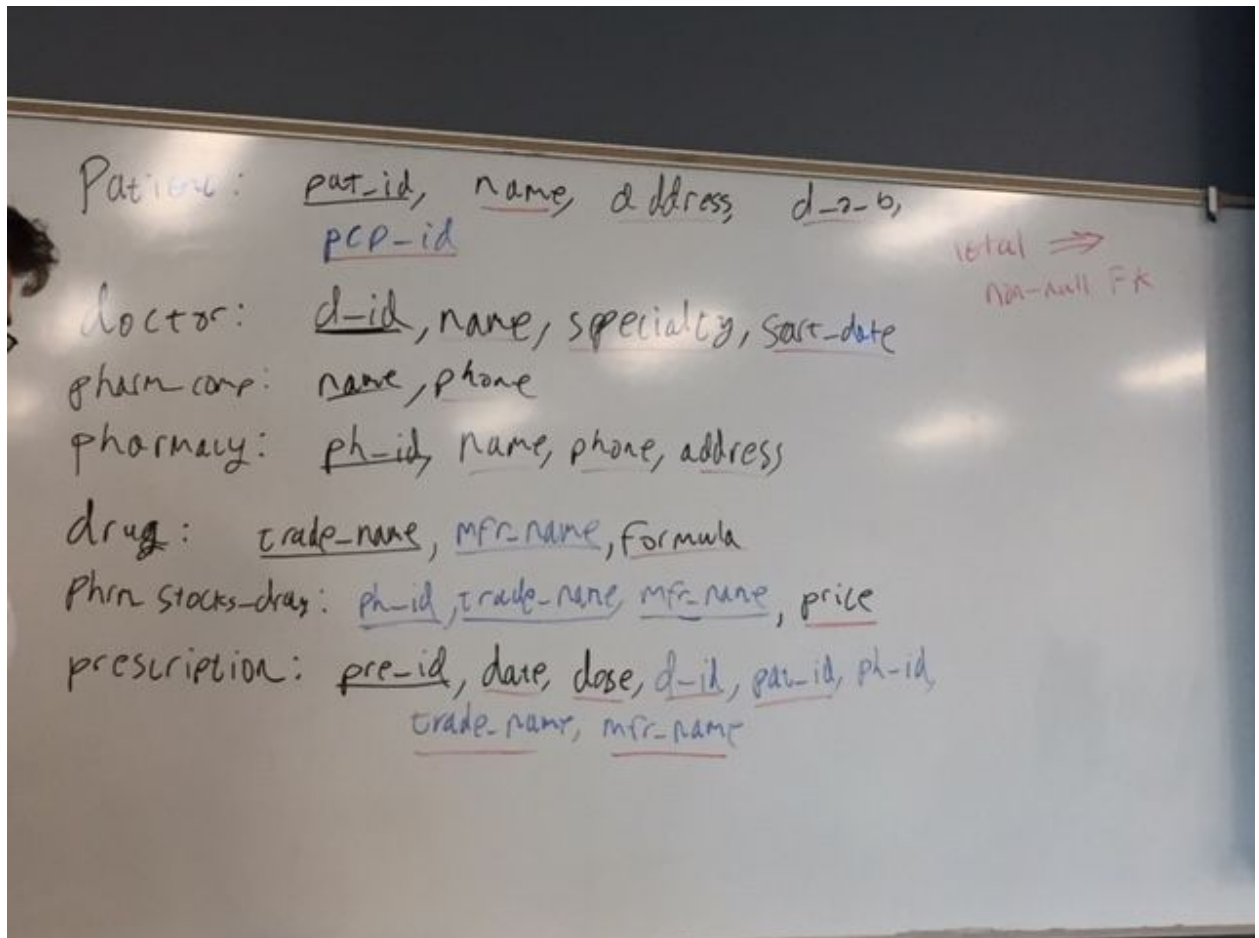 Patient: pat_id, name, address, d_o_b,
pcp_id
total ⇒
non-null FK
doctor: d_id, name, specialty, sart_date
pharm comp: name, phone
pharmacy: ph_id, name, phone, address
drug: trade_name, mfr_name, formula
phrm stocks_drug: ph_id, trade_name, mfr_name, price
prescription: pre_id, date, dose, d_id, pat_id, ph_id,
trade_name, mfr_name